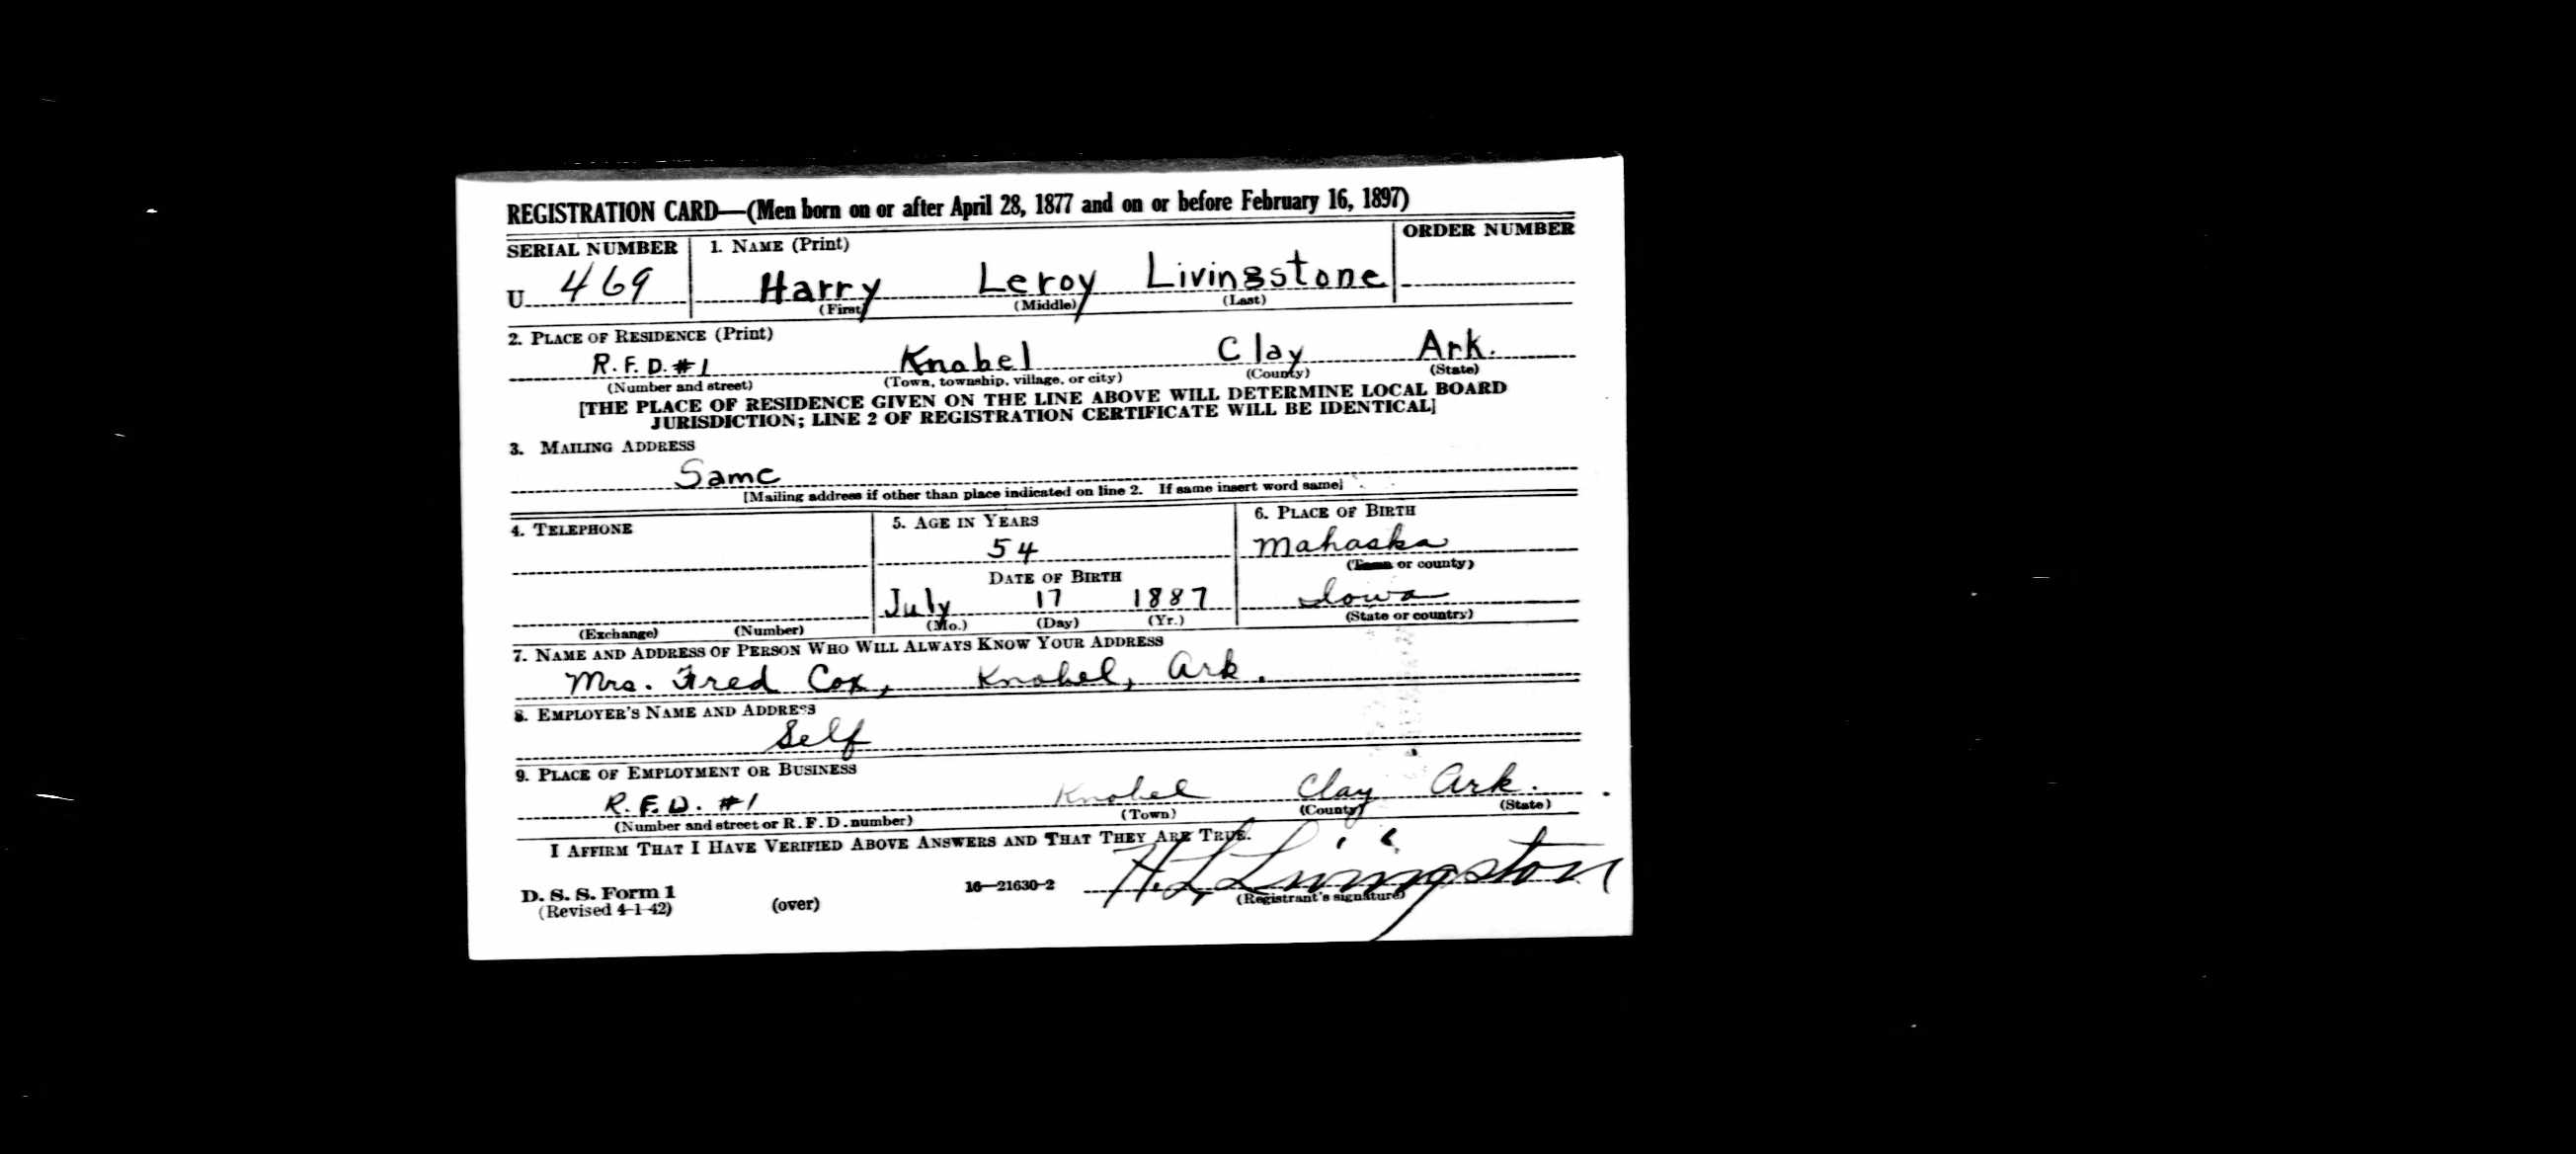 REGISTRATION CARD—(Men born on or after April 28, 1877 and on or before February 16, 1897)
SERIAL NUMBER 1. NAME (Print) ORDER NUMBER
U 469 Harry Leroy Livingstone
(First) (Middle) (Last)
2. PLACE OF RESIDENCE (Print)
R.F.D. #1 Knobel Clay Ark.
(Number and street) (Town, township, village, or city) (County) (State)
[THE PLACE OF RESIDENCE GIVEN ON THE LINE ABOVE WILL DETERMINE LOCAL BOARD
JURISDICTION; LINE 2 OF REGISTRATION CERTIFICATE WILL BE IDENTICAL]
3. MAILING ADDRESS
Same
[Mailing address if other than place indicated on line 2. If same insert word same]
4. TELEPHONE 5. AGE IN YEARS 6. PLACE OF BIRTH
54 Mahaska
DATE OF BIRTH (Town or county)
July 17 1887 Iowa
(Exchange) (Number) (Mo.) (Day) (Yr.) (State or country)
7. NAME AND ADDRESS OF PERSON WHO WILL ALWAYS KNOW YOUR ADDRESS
Mrs. Fred Cox, Knobel, Ark.
8. EMPLOYER'S NAME AND ADDRESS
Self
9. PLACE OF EMPLOYMENT OR BUSINESS
R.F.D. #1 Knobel Clay Ark.
(Number and street or R.F.D. number) (Town) (County) (State)
I AFFIRM THAT I HAVE VERIFIED ABOVE ANSWERS AND THAT THEY ARE TRUE.
D. S. S. Form 1 16—21630-2 H. L. Livingston
(Revised 4-1-42) (over) (Registrant's signature)